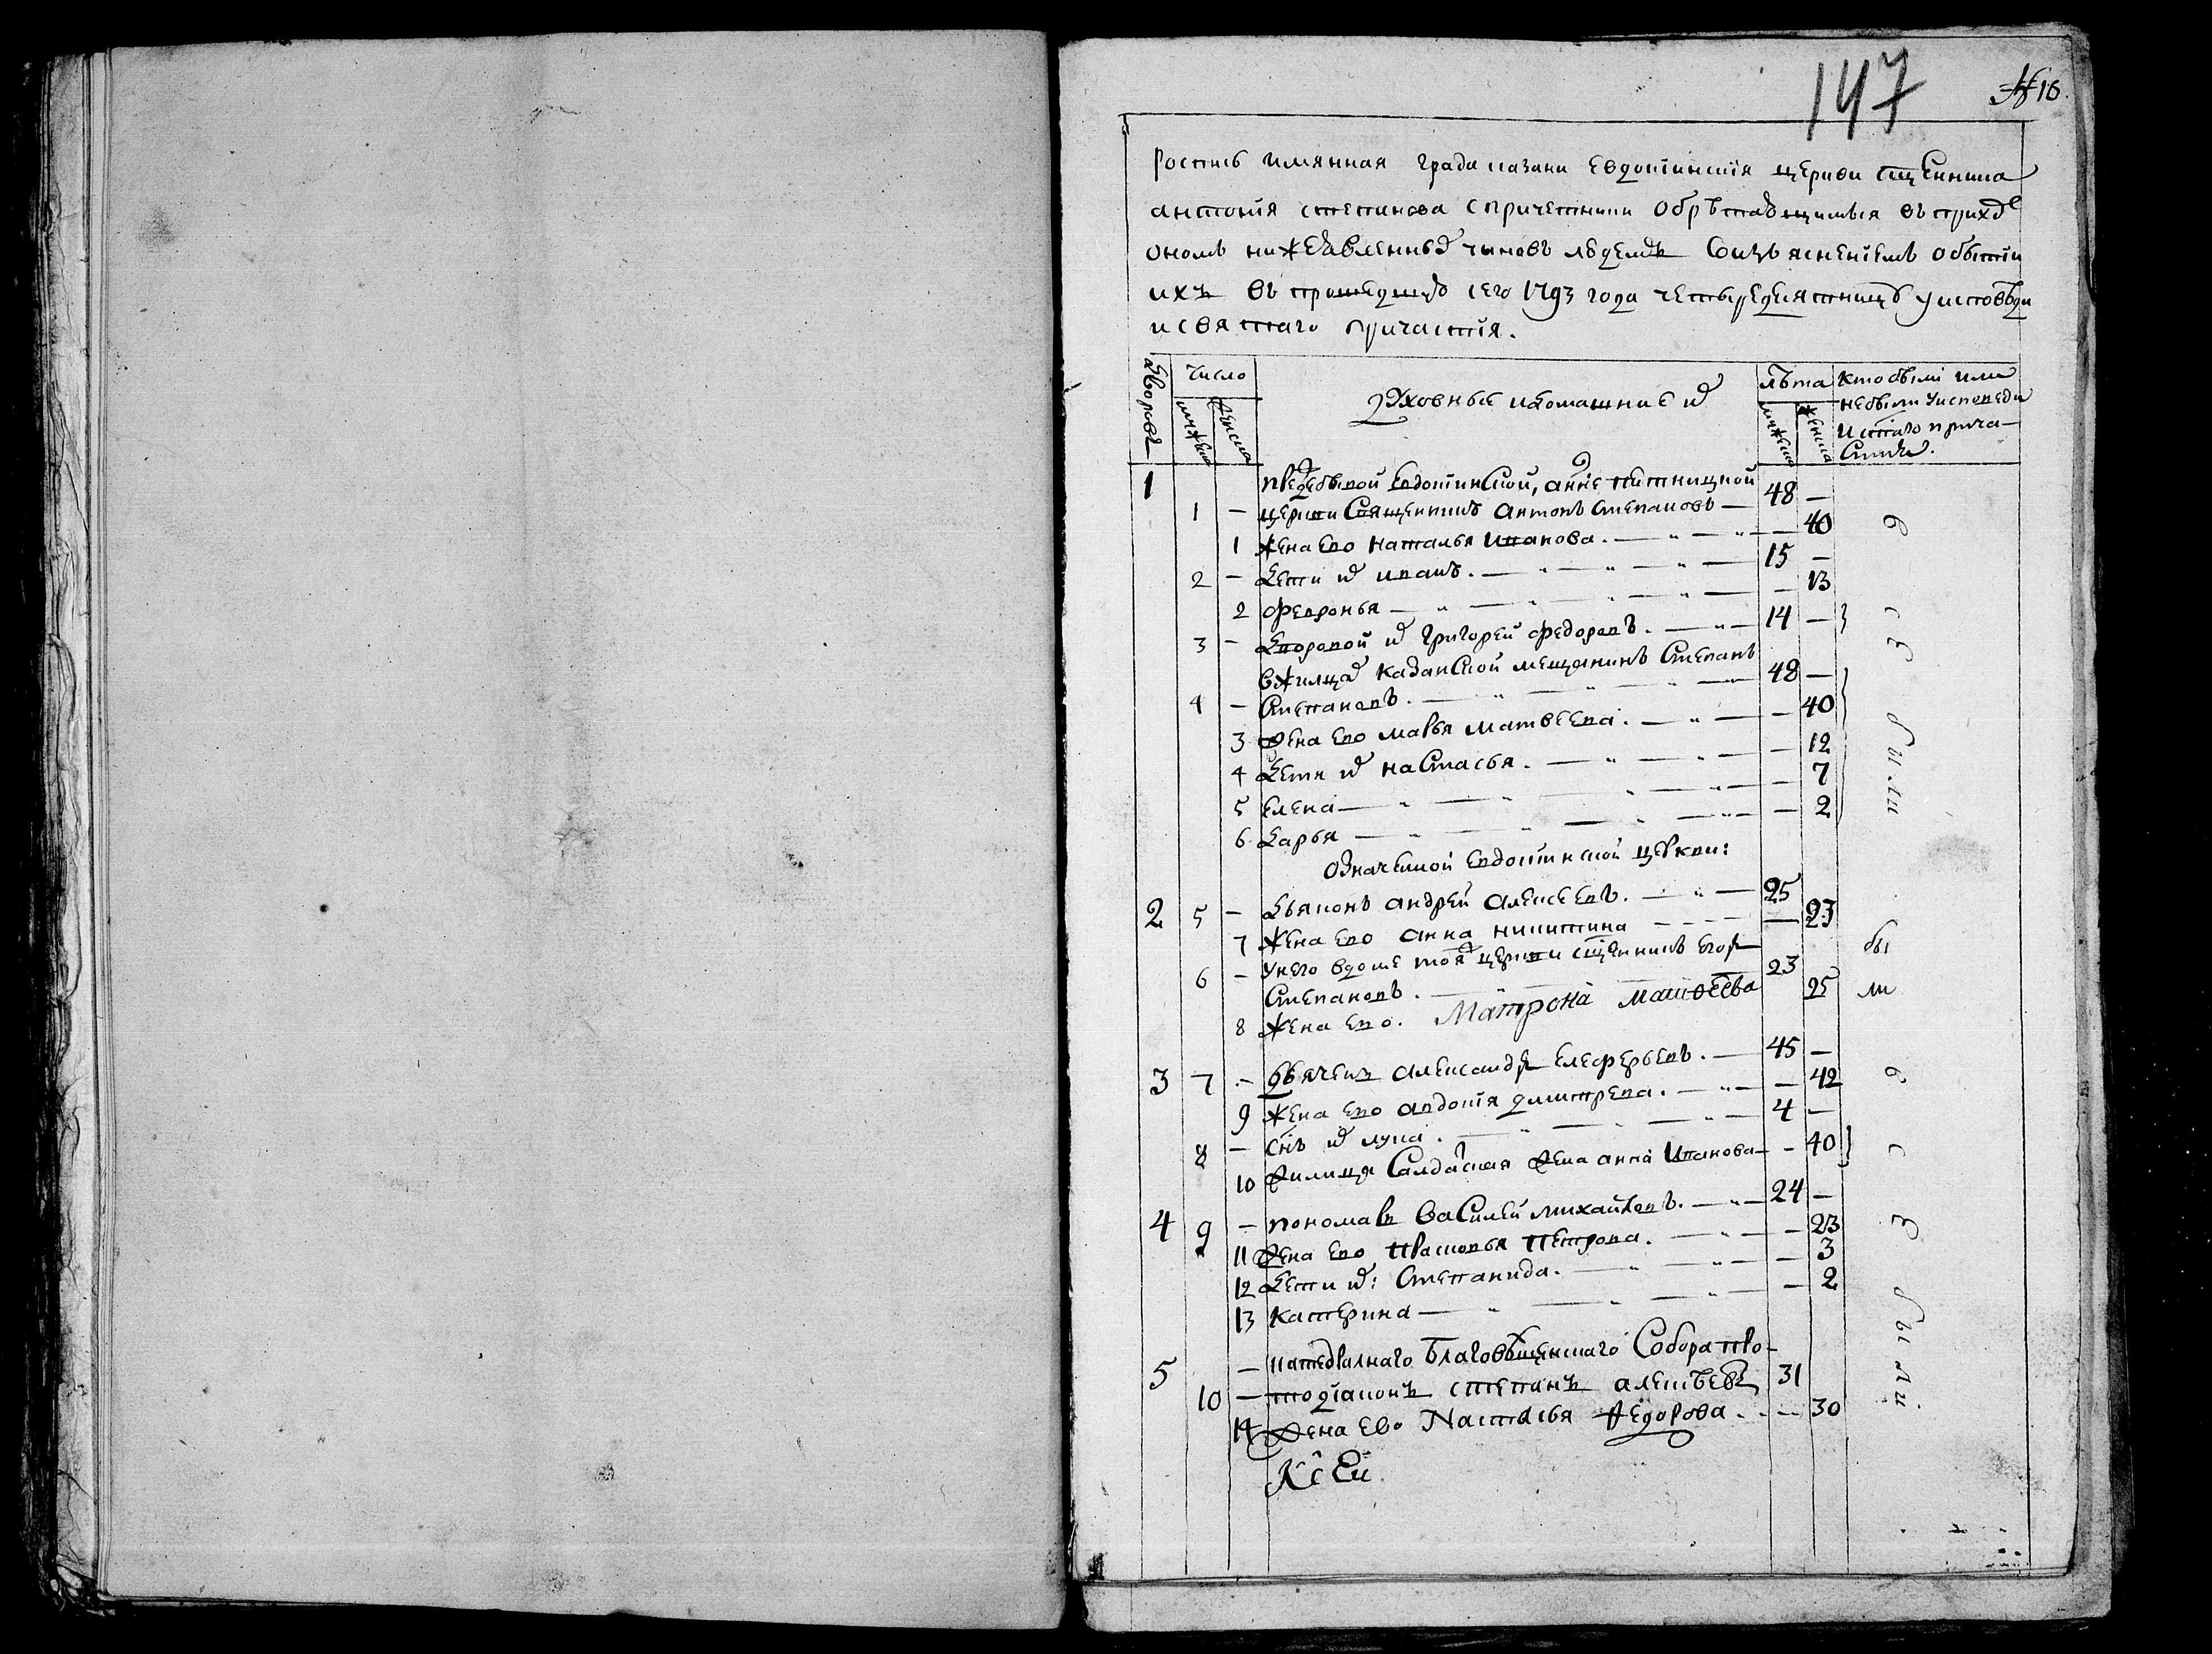 147
№ 16
роспись имянная града казани Евдокинскія церкви сщенника
антонія степанова с причетники обрѣтающимъся въ приходе
ономъ нижеявленныхъ чиновъ людемъ со изъясненіемъ о бытіи
ихъ въ прошедшую сего 1793 года четыредесятницу у исповѣди
и святаго причастія.
Дворовъ
Число
мужеска
женска
духовныя и домашние их
лѣта
мужеска
женска
кто были или
не были у исповеди
и стаго прича-
стия.
1
Евдокинской,
1 — церкви Священникъ Антонъ Степановъ — 48 —
1 жена ево Наталья Иванова. — 40
2 — Дети их Иванъ. — 15 —
2 Февронья — 13
3 — их Григорей Федоровъ. — 14 —
в жилцах Казанской мещанинъ Степанъ
4 — Степановъ. — 48 —
3 жена ево Марья Матвеева. — 40
4 Дети их Настасья. — 12
5 Елена — 7
6 Дарья — 2
всѣ были
Означенной Евдокинской церкви:
2 5 — Дьяконъ Андрей Алексеевъ. — 25
7 жена ево Анна Никитина — 23
6 — У него в доме тоя церкви сщенникъ Егоръ
Степановъ. — 23
8 жена ево. Матрона Матвѣева 25
бы
ли
3 7 — дьячекъ Александръ Елеферьевъ. — 45 —
9 жена ево Авдотія Дмитрева. — 42
8 — снъ их Лука. — 4 —
10 жилица Салдатская жена Анна Иванова — 40
4 9 — пономарь Василей Михайловъ. — 24 —
11 жена ево Прасковья Петрова. — 23
12 Дети их: Степанида. — 3
13 Катерина — 2
всѣ были
5 — катедралнаго Благовѣщенскаго Собора про-
10 — тодіаконъ Степанъ Алексѣевъ 31
14 жена Ево Настасья Федорова. — 30